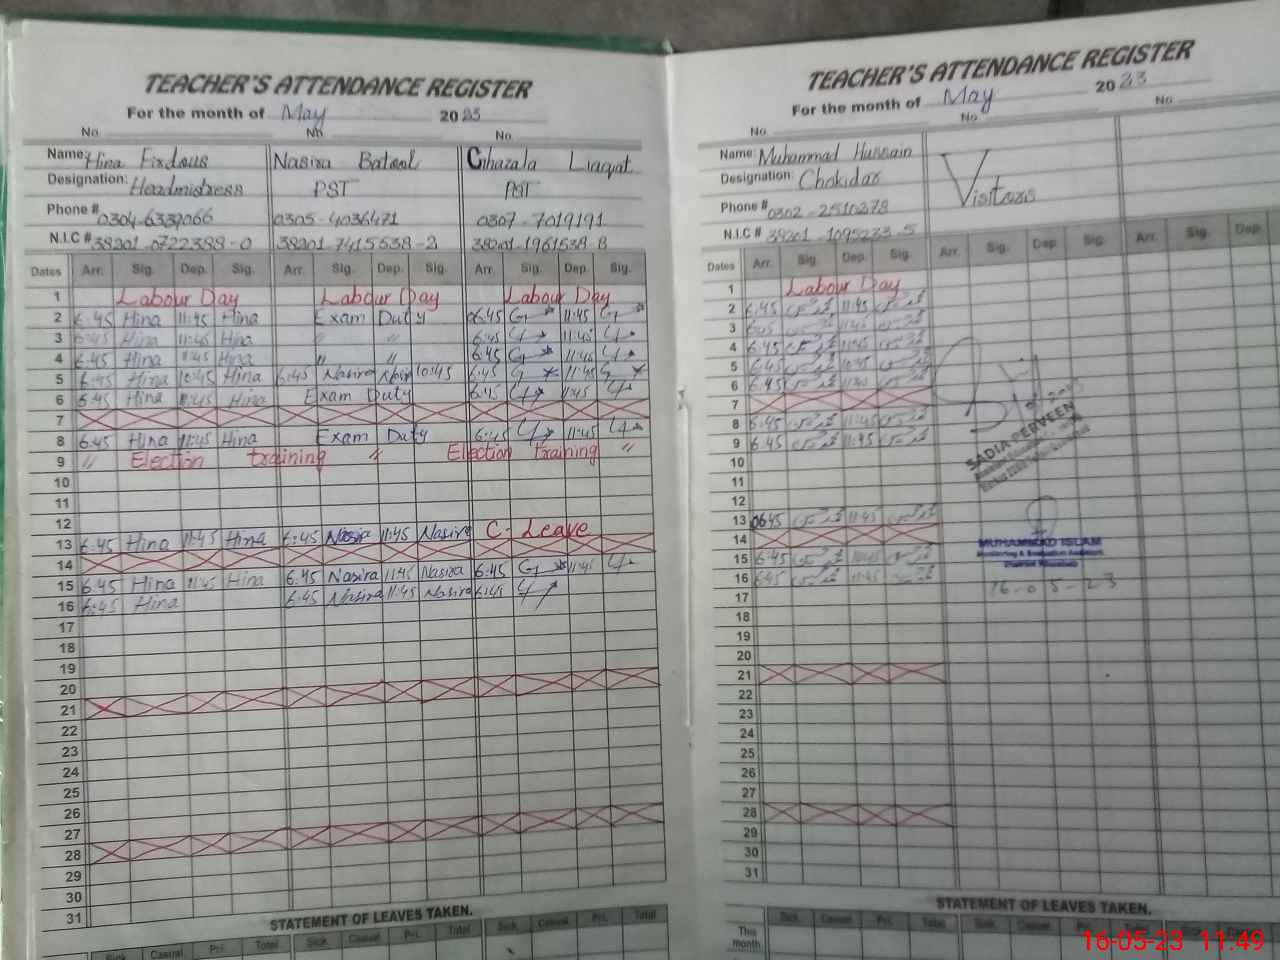 TEACHER'S ATTENDANCE REGISTER
For the month of May 2023
No. No. No.
Name: Hina Firdous Nasira Batool Ghazala Liaqat
Designation: Headmistress PST PST
Phone # 0304-6339066 0305-4036471 0307-7019191
N.I.C # 38201-0722388-0 38201-7415638-2 38201-1961538-8
Dates Arr. Sig. Dep. Sig. Arr. Sig. Dep. Sig. Arr. Sig. Dep. Sig.
1 Labour Day Labour Day Labour Day
2 6:45 Hina 11:45 Hina Exam Duty 06:45 11:45
3 6:45 Hina 11:45 Hina " " 6:45 11:45
4 6:45 Hina 11:45 Hina " " 6:45 11:45
5 6:45 Hina 10:45 Hina 6:45 Nasira 10:45 6:45 11:45
6 6:45 Hina 11:45 Hina Exam Duty 6:45 11:45
7
8 6:45 Hina 11:45 Hina Exam Duty 6:45 11:45
9 " Election training " Election training "
10
11
12
13 6:45 Hina 11:45 Hina 6:45 Nasira 11:45 Nasira C- Leave
14
15 6:45 Hina 11:45 Hina 6:45 Nasira 11:45 Nasira 6:45 11:45
16 6:45 Hina 6:45 Nasira 11:45 Nasira 6:45
17
18
19
20
21
22
23
24
25
26
27
28
29
30
31
STATEMENT OF LEAVES TAKEN.
Sick Casual Pri. Total Sick. Casual Pri. Total Sick. Casual Pri. Total
TEACHER'S ATTENDANCE REGISTER
For the month of May 2023
No. No. No.
Name: Muhammad Hussain Visitors
Designation: Chokidar
Phone # 0302-2510378
N.I.C # 38201-1095233-5
Dates Arr. Sig. Dep. Sig. Arr. Sig. Dep. Sig. Arr. Sig. Dep.
1 Labour Day
2 6:45 11:45
3 6:45 11:45
4 6:45 11:45
5 6:45 10:45
6 6:45 11:45
7
8 6:45 11:45
9 6:45 11:45
SADIA PERVEEN
10
11
12
13 06:45 11:45
14
MUHAMMAD ISLAM
Monitoring & Evaluation Assistant
15 6:45 11:45
16 6:45 11:45
16-05-23
17
18
19
20
21
22
23
24
25
26
27
28
29
30
31
STATEMENT OF LEAVES TAKEN.
This month Sick. Casual Pri. Total Sick. Casual Pri. Total
16-05-23 11:49